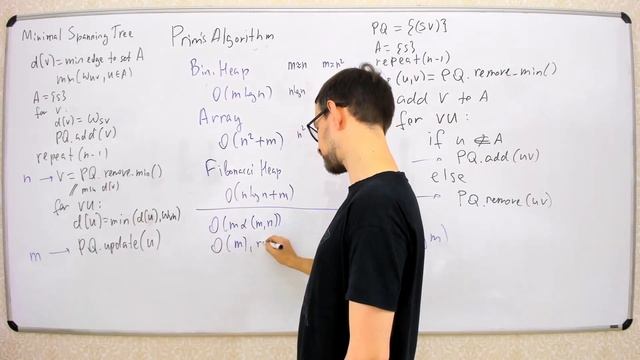 Minimal Spanning Tree
d(v) = min edge to set A
min(Wuv, u∈A)
A = {s}
for v:
d(v) = Wsv
PQ.add(v)
repeat (n-1)
n → v = PQ.remove_min()
// min d(v)
for vu:
d[u] = min(d(u), Wvu)
m → PQ.update(u)
Prim's Algorithm
Bin. Heap m≈n m≈n²
O(m lg n) n lg n
Array
O(n²+m) n²
Fibonacci Heap
O(n lg n + m)
O(m α(m,n))
O(m), r
PQ = {(sv)}
A = {s}
repeat (n-1)
(u,v) = PQ.remove_min()
add v to A
for vu:
if u ∉ A
→ PQ.add(uv)
else
→ PQ.remove(uv)
m)